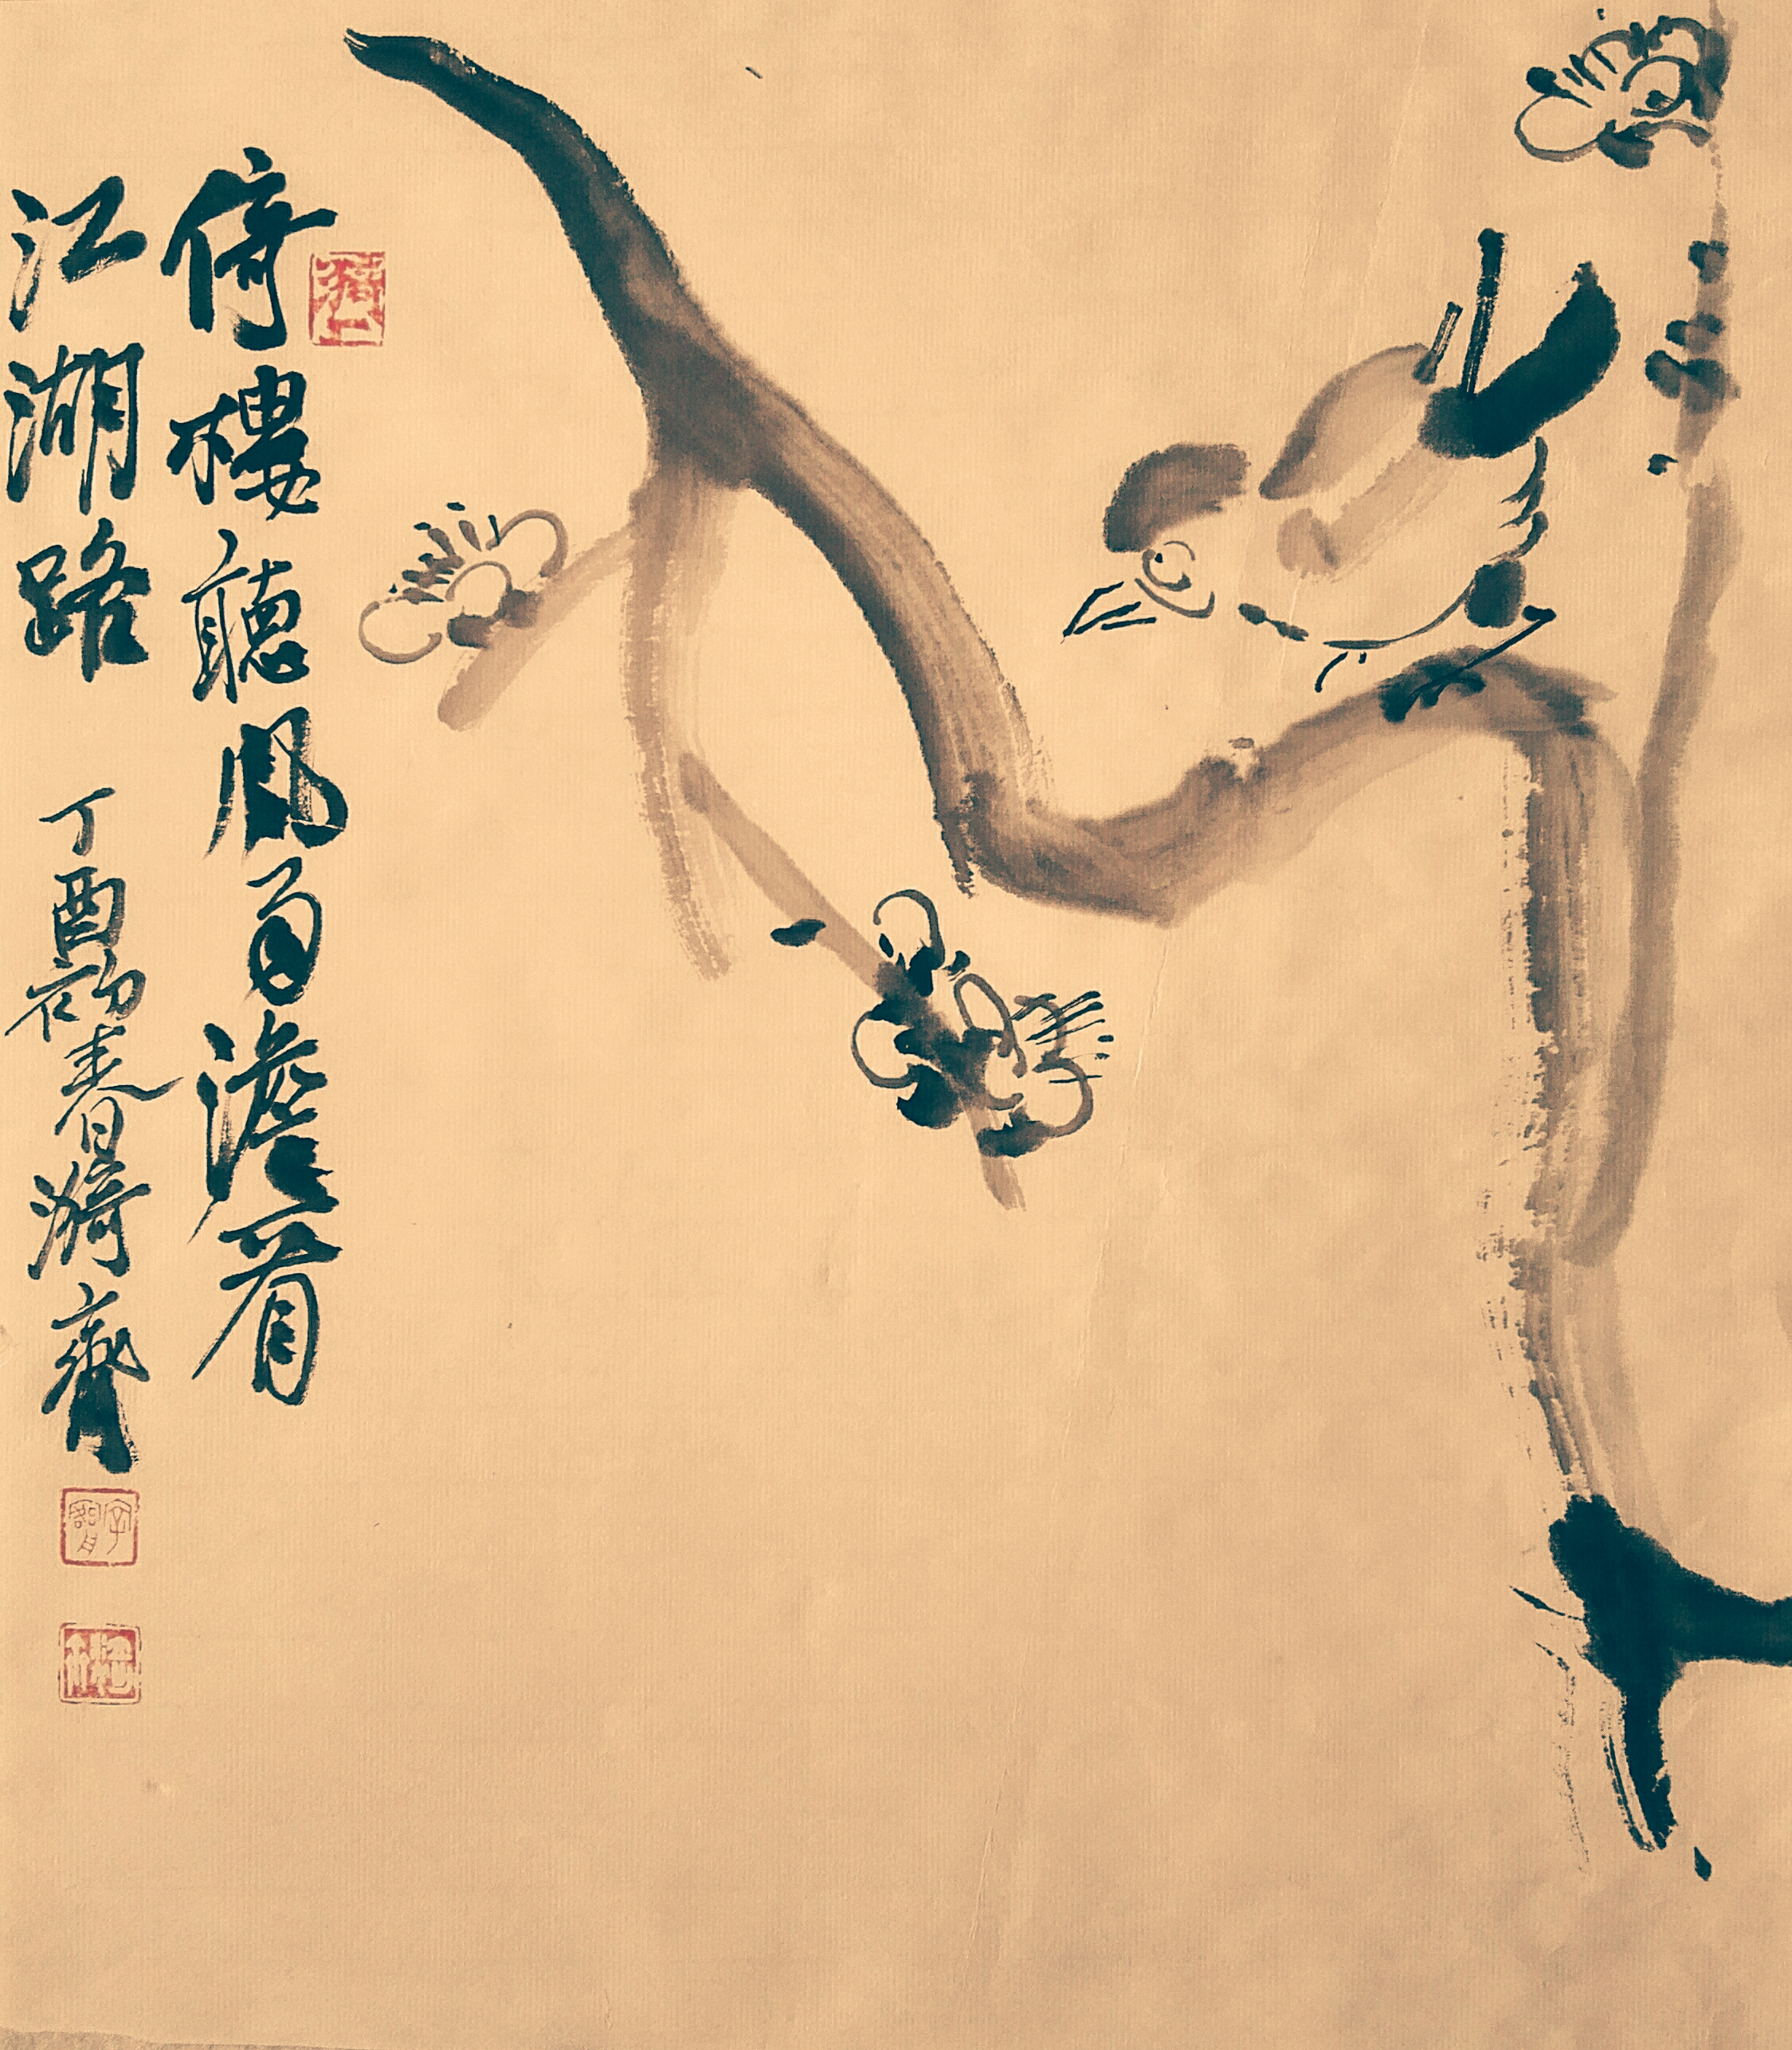 倚樓聽風雨澹看
江湖路 丁酉初春日漪齋